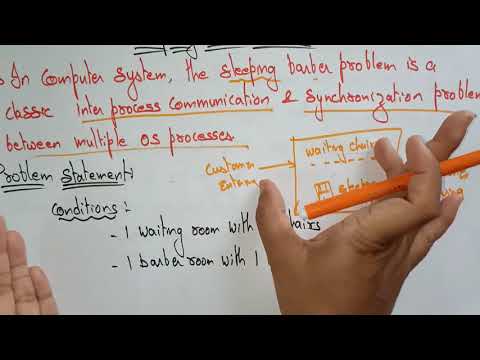 In Computer System, the sleeping barber problem is a
classic Inter process communication & synchronization problem
between multiple OS processes
Problem Statement:
waiting chairs
customer
Conditions :-
- 1 waiting room with
- 1 barber room with 1